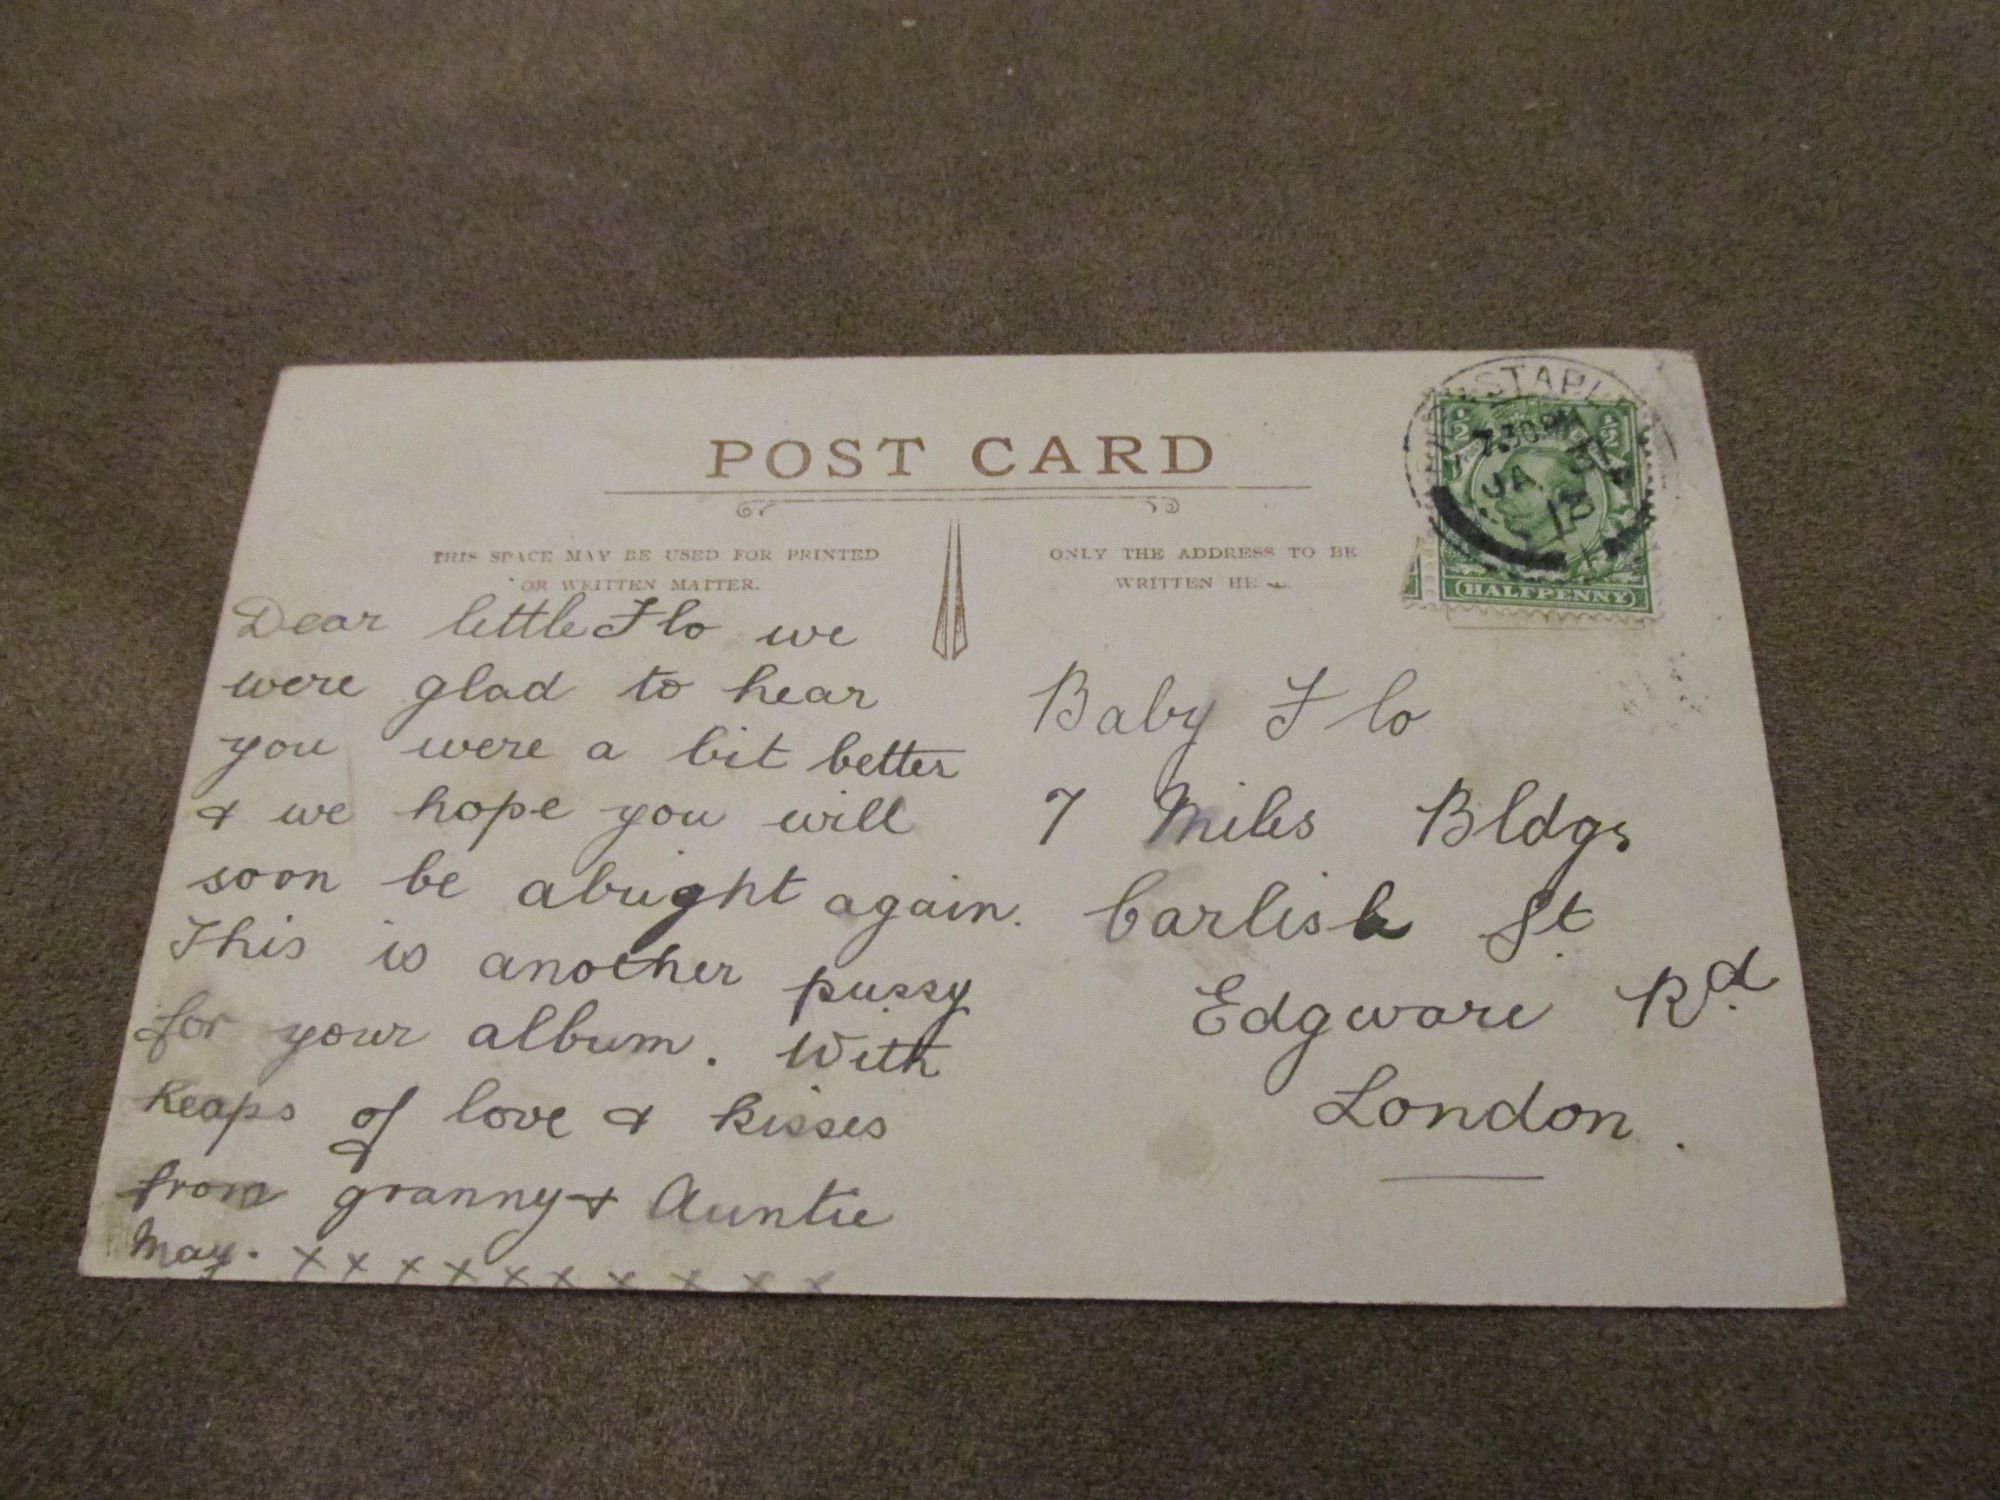 POST CARD
THIS SPACE MAY BE USED FOR PRINTED
OR WRITTEN MATTER.
ONLY THE ADDRESS TO BE
WRITTEN
Dear little Flo we
were glad to hear
you were a bit better
& we hope you will
soon be alright again.
This is another pussy
for your album. With
heaps of love & kisses
from granny & Auntie
May. x x x x x x x x x x
Baby Flo
7 Miles Bldgs
Carlisle St
Edgware Rd.
London.
7.30PM
JA
½
½
HALFPENNY